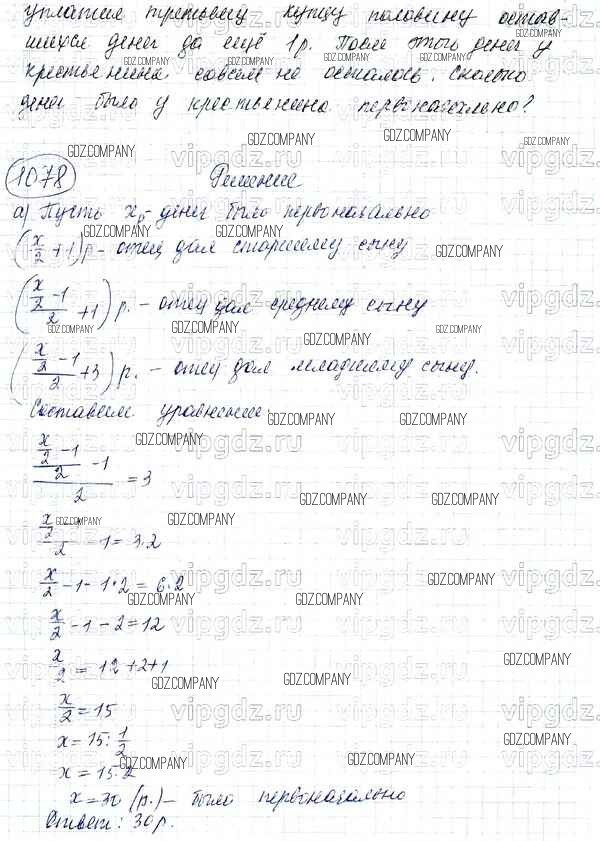 уплатив третьему купцу половину остав-
шихся денег да ещё 1р. После этого денег у
крестьянина совсем не осталось. Сколько
денег было у крестьянина первоначально?
1078 Решение
а) Пусть x р денег было первоначально
(x/2 + 1) р - отец дал старшему сыну
((x/2 - 1)/2 + 1) р. - отец дал среднему сыну
((x/2 - 1)/2 + 3) р. - отец дал младшему сыну.
Составим уравнение:
((x/2 - 1)/2 - 1)/2 = 3
- 1 = 3·2
x/2 - 1 - 1·2 = 6·2
x/2 - 1 - 2 = 12
x/2 = 12 + 2 + 1
x/2 = 15
x = 15 : 1/2
x = 15·2
x = 30 (р.) - было первоначально
Ответ: 30 р.
GDZ.COMPANY
vipgdz.ru